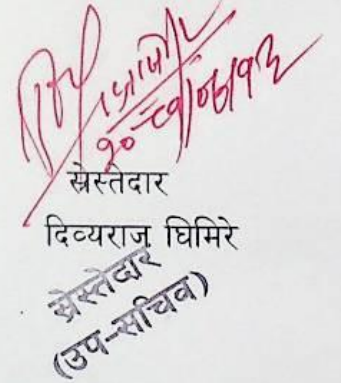 स्रेस्तेदार
दिव्यराज घिमिरे
स्रेस्तेदार
(उप-सचिव)